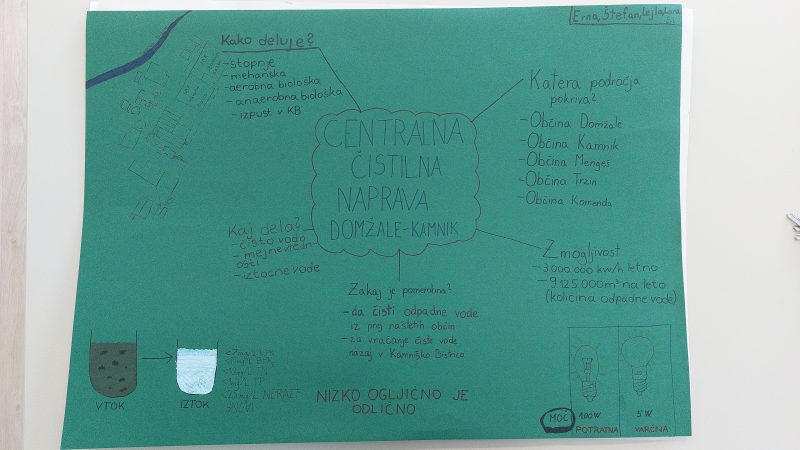 Erna, Štefan, Lejla, Lana
Kako deluje?
-stopnje
-mehanska
-aerobna biološka
-anaerobna biološka
-izpust v KB
Katera področja
pokriva?
-Občina Domžale
-Občina Kamnik
-Občina Mengeš
-Občina Trzin
-Občina Komenda
CENTRALNA
ČISTILNA
NAPRAVA
DOMŽALE-KAMNIK
Kaj dela?
-čisto vodo
-mejne vredn-
osti
-iztočne vode
Zmogljivost
-3.000.000 kw/h letno
-9125.000m³ na leto
(količina odpadne vode)
Zakaj je pomembna?
-da čisti odpadne vode
iz prej naštetih občin
-za vračanje čiste vode
nazaj v Kamniško Bistrico
VTOK
IZTOK
NERAZT
SNOVI
NIZKO OGLJIČNO JE
ODLIČNO
MOČ
100W
5W
POTRATNA
VARČNA